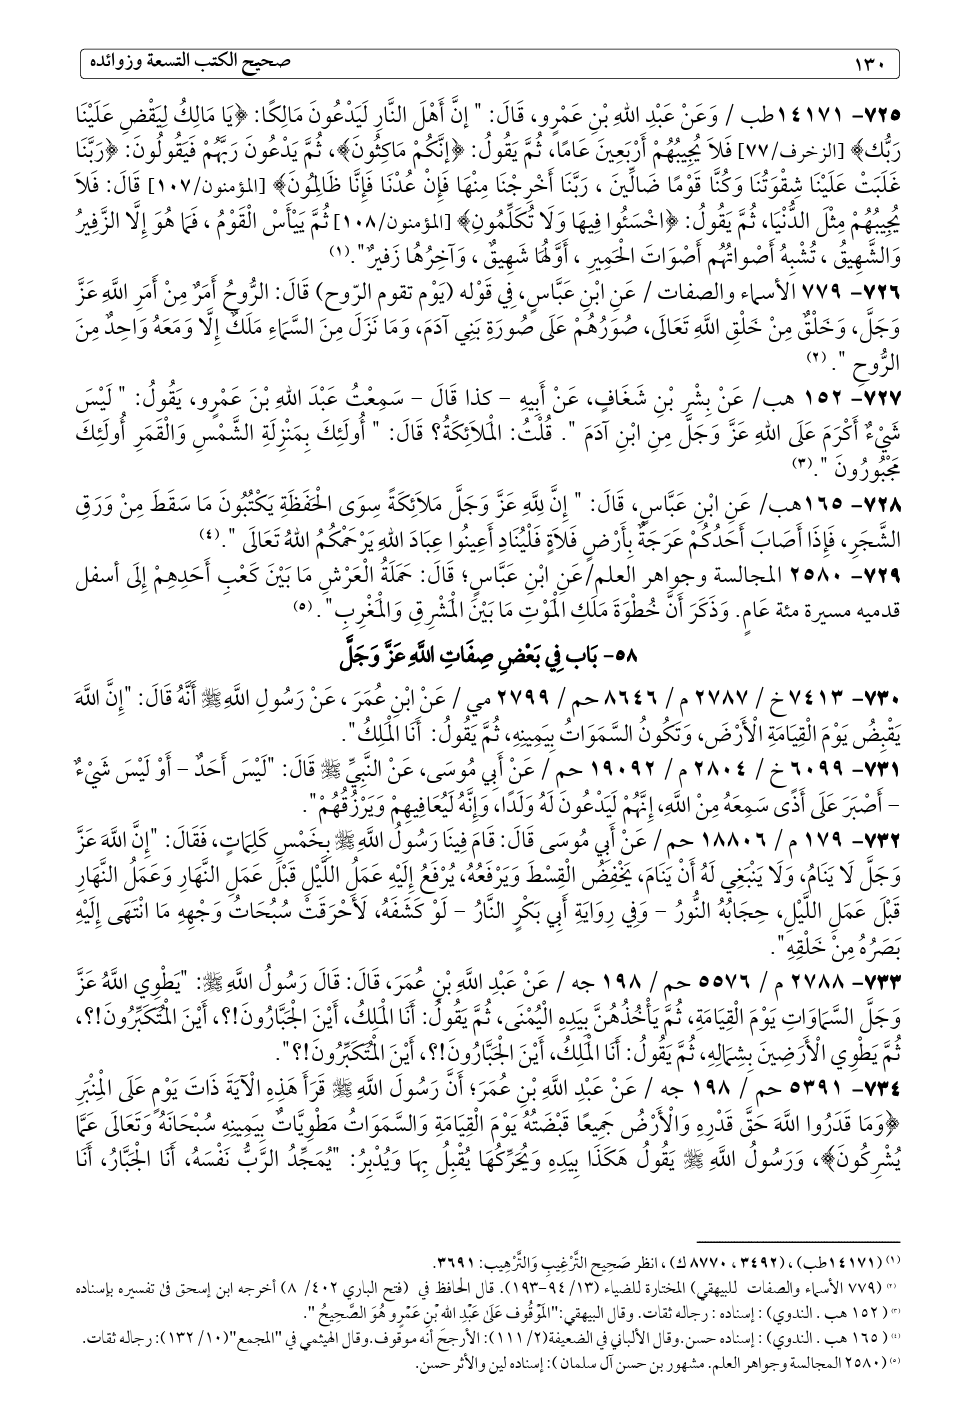 ١٣٠ صحيح الكتب التسعة وزوائده
٧٢٥- ١٤١٧١طب / وَعَنْ عَبْدِ اللهِ بْنِ عَمْرٍو، قَالَ: " إِنَّ أَهْلَ النَّارِ لَيَدْعُونَ مَالِكًا: ﴿يَا مَالِكُ لِيَقْضِ عَلَيْنَا
رَبُّك﴾ [الزخرف/٧٧] فَلاَ يُجِيبُهُمْ أَرْبَعِينَ عَامًا، ثُمَّ يَقُولُ: ﴿إِنَّكُمْ مَاكِثُونَ﴾، ثُمَّ يَدْعُونَ رَبَّهُمْ فَيَقُولُونَ: ﴿رَبَّنَا
غَلَبَتْ عَلَيْنَا شِقْوَتُنَا وَكُنَّا قَوْمًا ضَالِّينَ ، رَبَّنَا أَخْرِجْنَا مِنْهَا فَإِنْ عُدْنَا فَإِنَّا ظَالِمُونَ﴾ [المؤمنون/١٠٧] قَالَ: فَلاَ
يُجِيبُهُمْ مِثْلَ الدُّنْيَا، ثُمَّ يَقُولُ: ﴿اخْسَئُوا فِيهَا وَلَا تُكَلِّمُونِ﴾ [المؤمنون/١٠٨] ثُمَّ يَيْأَسُ الْقَوْمُ ، فَمَا هُوَ إِلَّا الزَّفِيرُ
وَالشَّهِيقُ ، تُشْبِهُ أَصْوَاتُهُم أَصْوَاتَ الْحَمِيرِ ، أَوَّلُهَا شَهِيقٌ ، وَآخِرُهَا زَفِيرٌ". (١)
٧٢٦- ٧٧٩ الأسماء والصفات / عَنِ ابْنِ عَبَّاسٍ، فِي قَوْله (يَوْم تقوم الرّوح) قَالَ: الرُّوحُ أَمَرٌ مِنْ أَمَرِ اللَّهِ عَزَّ
وَجَلَّ، وَخَلْقٌ مِنْ خَلْقِ اللَّهِ تَعَالَى، صُوَرُهُمْ عَلَى صُورَةِ بَنِي آدَمَ، وَمَا نَزَلَ مِنَ السَّمَاءِ مَلَكٌ إِلَّا وَمَعَهُ وَاحِدٌ مِنَ
الرُّوحِ ". (٢)
٧٢٧- ١٥٢ هب/ عَنْ بِشْرِ بْنِ شَغَافٍ، عَنْ أَبِيهِ - كذا قَالَ - سَمِعْتُ عَبْدَ اللهِ بْنَ عَمْرٍو، يَقُولُ: " لَيْسَ
شَيْءٌ أَكْرَمَ عَلَى اللهِ عَزَّ وَجَلَّ مِنِ ابْنِ آدَمَ ". قُلْتُ: الْمَلَائِكَةُ؟ قَالَ: " أُولَئِكَ بِمَنْزِلَةِ الشَّمْسِ وَالْقَمَرِ أُولَئِكَ
مَجْبُورُونَ ". (٣)
٧٢٨- ١٦٥هب/ عَنِ ابْنِ عَبَّاسٍ، قَالَ: " إِنَّ لِلَّهِ عَزَّ وَجَلَّ مَلَائِكَةً سِوَى الْحَفَظَةِ يَكْتُبُونَ مَا سَقَطَ مِنْ وَرَقِ
الشَّجَرِ، فَإِذَا أَصَابَ أَحَدُكُمْ عَرَجَةٌ بِأَرْضٍ فَلَاةٍ فَلْيُنَادِ أَعِينُوا عِبَادَ اللهِ يَرْحَمْكُمُ اللهُ تَعَالَى ". (٤)
٧٢٩- ٢٥٨٠ المجالسة وجواهر العلم/عَنِ ابْنِ عَبَّاسٍ؛ قَالَ: حَمَلَةُ الْعَرْشِ مَا بَيْنَ كَعْبِ أَحَدِهِمْ إِلَى أسفل
قدميه مسيرة مئة عَامٍ. وَذَكَرَ أَنَّ خُطْوَةَ مَلَكِ الْمَوْتِ مَا بَيْنَ الْمَشْرِقِ وَالْمَغْرِبِ". (٥)
٥٨- بَاب فِي بَعْضِ صِفَاتِ اللَّهِ عَزَّ وَجَلَّ
٧٣٠- ٧٤١٣خ / ٢٧٨٧ م / ٨٦٤٦ حم / ٢٧٩٩ مي / عَنْ ابْنِ عُمَرَ ، عَنْ رَسُولِ اللَّهِ ﷺ أَنَّهُ قَالَ: "إِنَّ اللَّهَ
يَقْبِضُ يَوْمَ الْقِيَامَةِ الْأَرْضَ، وَتَكُونُ السَّمَوَاتُ بِيَمِينِهِ، ثُمَّ يَقُولُ: أَنَا الْمَلِكُ".
٧٣١- ٦٠٩٩ خ / ٢٨٠٤ م / ١٩٠٩٢ حم / عَنْ أَبِي مُوسَى، عَنْ النَّبِيِّ ﷺ قَالَ: "لَيْسَ أَحَدٌ - أَوْ لَيْسَ شَيْءٌ
- أَصْبَرَ عَلَى أَذًى سَمِعَهُ مِنْ اللَّهِ، إِنَّهُمْ لَيَدْعُونَ لَهُ وَلَدًا، وَإِنَّهُ لَيُعَافِيهِمْ وَيَرْزُقُهُمْ".
٧٣٢- ١٧٩ م / ١٨٨٠٦ حم / عَنْ أَبِي مُوسَى قَالَ: قَامَ فِينَا رَسُولُ اللَّهِ ﷺ بِخَمْسِ كَلِمَاتٍ، فَقَالَ: "إِنَّ اللَّهَ عَزَّ
وَجَلَّ لَا يَنَامُ، وَلَا يَنْبَغِي لَهُ أَنْ يَنَامَ، يَخْفِضُ الْقِسْطَ وَيَرْفَعُهُ، يُرْفَعُ إِلَيْهِ عَمَلُ اللَّيْلِ قَبْلَ عَمَلِ النَّهَارِ وَعَمَلُ النَّهَارِ
قَبْلَ عَمَلِ اللَّيْلِ، حِجَابُهُ النُّورُ - وَفِي رِوَايَةِ أَبِي بَكْرٍ النَّارُ - لَوْ كَشَفَهُ، لَأَحْرَقَتْ سُبُحَاتُ وَجْهِهِ مَا انْتَهَى إِلَيْهِ
بَصَرُهُ مِنْ خَلْقِهِ".
٧٣٣- ٢٧٨٨ م / ٥٥٧٦ حم / ١٩٨ جه / عَنْ عَبْدِ اللَّهِ بْنِ عُمَرَ، قَالَ: قَالَ رَسُولُ اللَّهِ ﷺ: "يَطْوِي اللَّهُ عَزَّ
وَجَلَّ السَّمَاوَاتِ يَوْمَ الْقِيَامَةِ، ثُمَّ يَأْخُذُهُنَّ بِيَدِهِ الْيُمْنَى، ثُمَّ يَقُولُ: أَنَا الْمَلِكُ، أَيْنَ الْجَبَّارُونَ!؟، أَيْنَ الْمُتَكَبِّرُونَ!؟،
ثُمَّ يَطْوِي الْأَرَضِينَ بِشِمَالِهِ، ثُمَّ يَقُولُ: أَنَا الْمَلِكُ، أَيْنَ الْجَبَّارُونَ!؟، أَيْنَ الْمُتَكَبِّرُونَ!؟".
٧٣٤- ٥٣٩١ حم / ١٩٨ جه / عَنْ عَبْدِ اللَّهِ بْنِ عُمَرَ؛ أَنَّ رَسُولَ اللَّهِ ﷺ قَرَأَ هَذِهِ الْآيَةَ ذَاتَ يَوْمٍ عَلَى الْمِنْبَرِ
﴿وَمَا قَدَرُوا اللَّهَ حَقَّ قَدْرِهِ وَالْأَرْضُ جَمِيعًا قَبْضَتُهُ يَوْمَ الْقِيَامَةِ وَالسَّمَوَاتُ مَطْوِيَّاتٌ بِيَمِينِهِ سُبْحَانَهُ وَتَعَالَى عَمَّا
يُشْرِكُونَ﴾، وَرَسُولُ اللَّهِ ﷺ يَقُولُ هَكَذَا بِيَدِهِ وَيُحَرِّكُهَا يُقْبِلُ بِهَا وَيُدْبِرُ: "يُمَجِّدُ الرَّبُّ نَفْسَهُ، أَنَا الْجَبَّارُ، أَنَا
(١) (١٤١٧١طب) ، (٣٤٩٢ ، ٨٧٧٠ ك) ، انظر صَحِيح التَّرْغِيبِ وَالتَّرْهِيب: ٣٦٩١.
(٢) (٧٧٩ الأسماء والصفات للبيهقي) المختارة للضياء (١٣/ ٩٤-١٩٣). قال الحافظ في (فتح الباري ٤٠٢/ ٨) أخرجه ابن إسحق فى تفسيره بإسناده
(٣) (١٥٢ هب . الندوي) : إسناده : رجاله ثقات. وقال البيهقي:"الْمَوْقُوف عَلَى عَبْدِ اللهِ بْنِ عَمْرٍو هُوَ الصَّحِيحُ ".
(٤) ( ١٦٥ هب . الندوي) : إسناده حسن.وقال الألباني في الضعيفة(١١١/٢): الأرجحَ أنه موقوف.وقال الهيثمي في "المجمع"(١٠/ ١٣٢): رجاله ثقات.
(٥) (٢٥٨٠ المجالسة وجواهر العلم. مشهور بن حسن آل سلمان ): إسناده لين والأثر حسن.